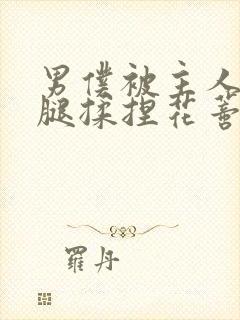 男僕被主人
腿揉捏花蒂
羅丹